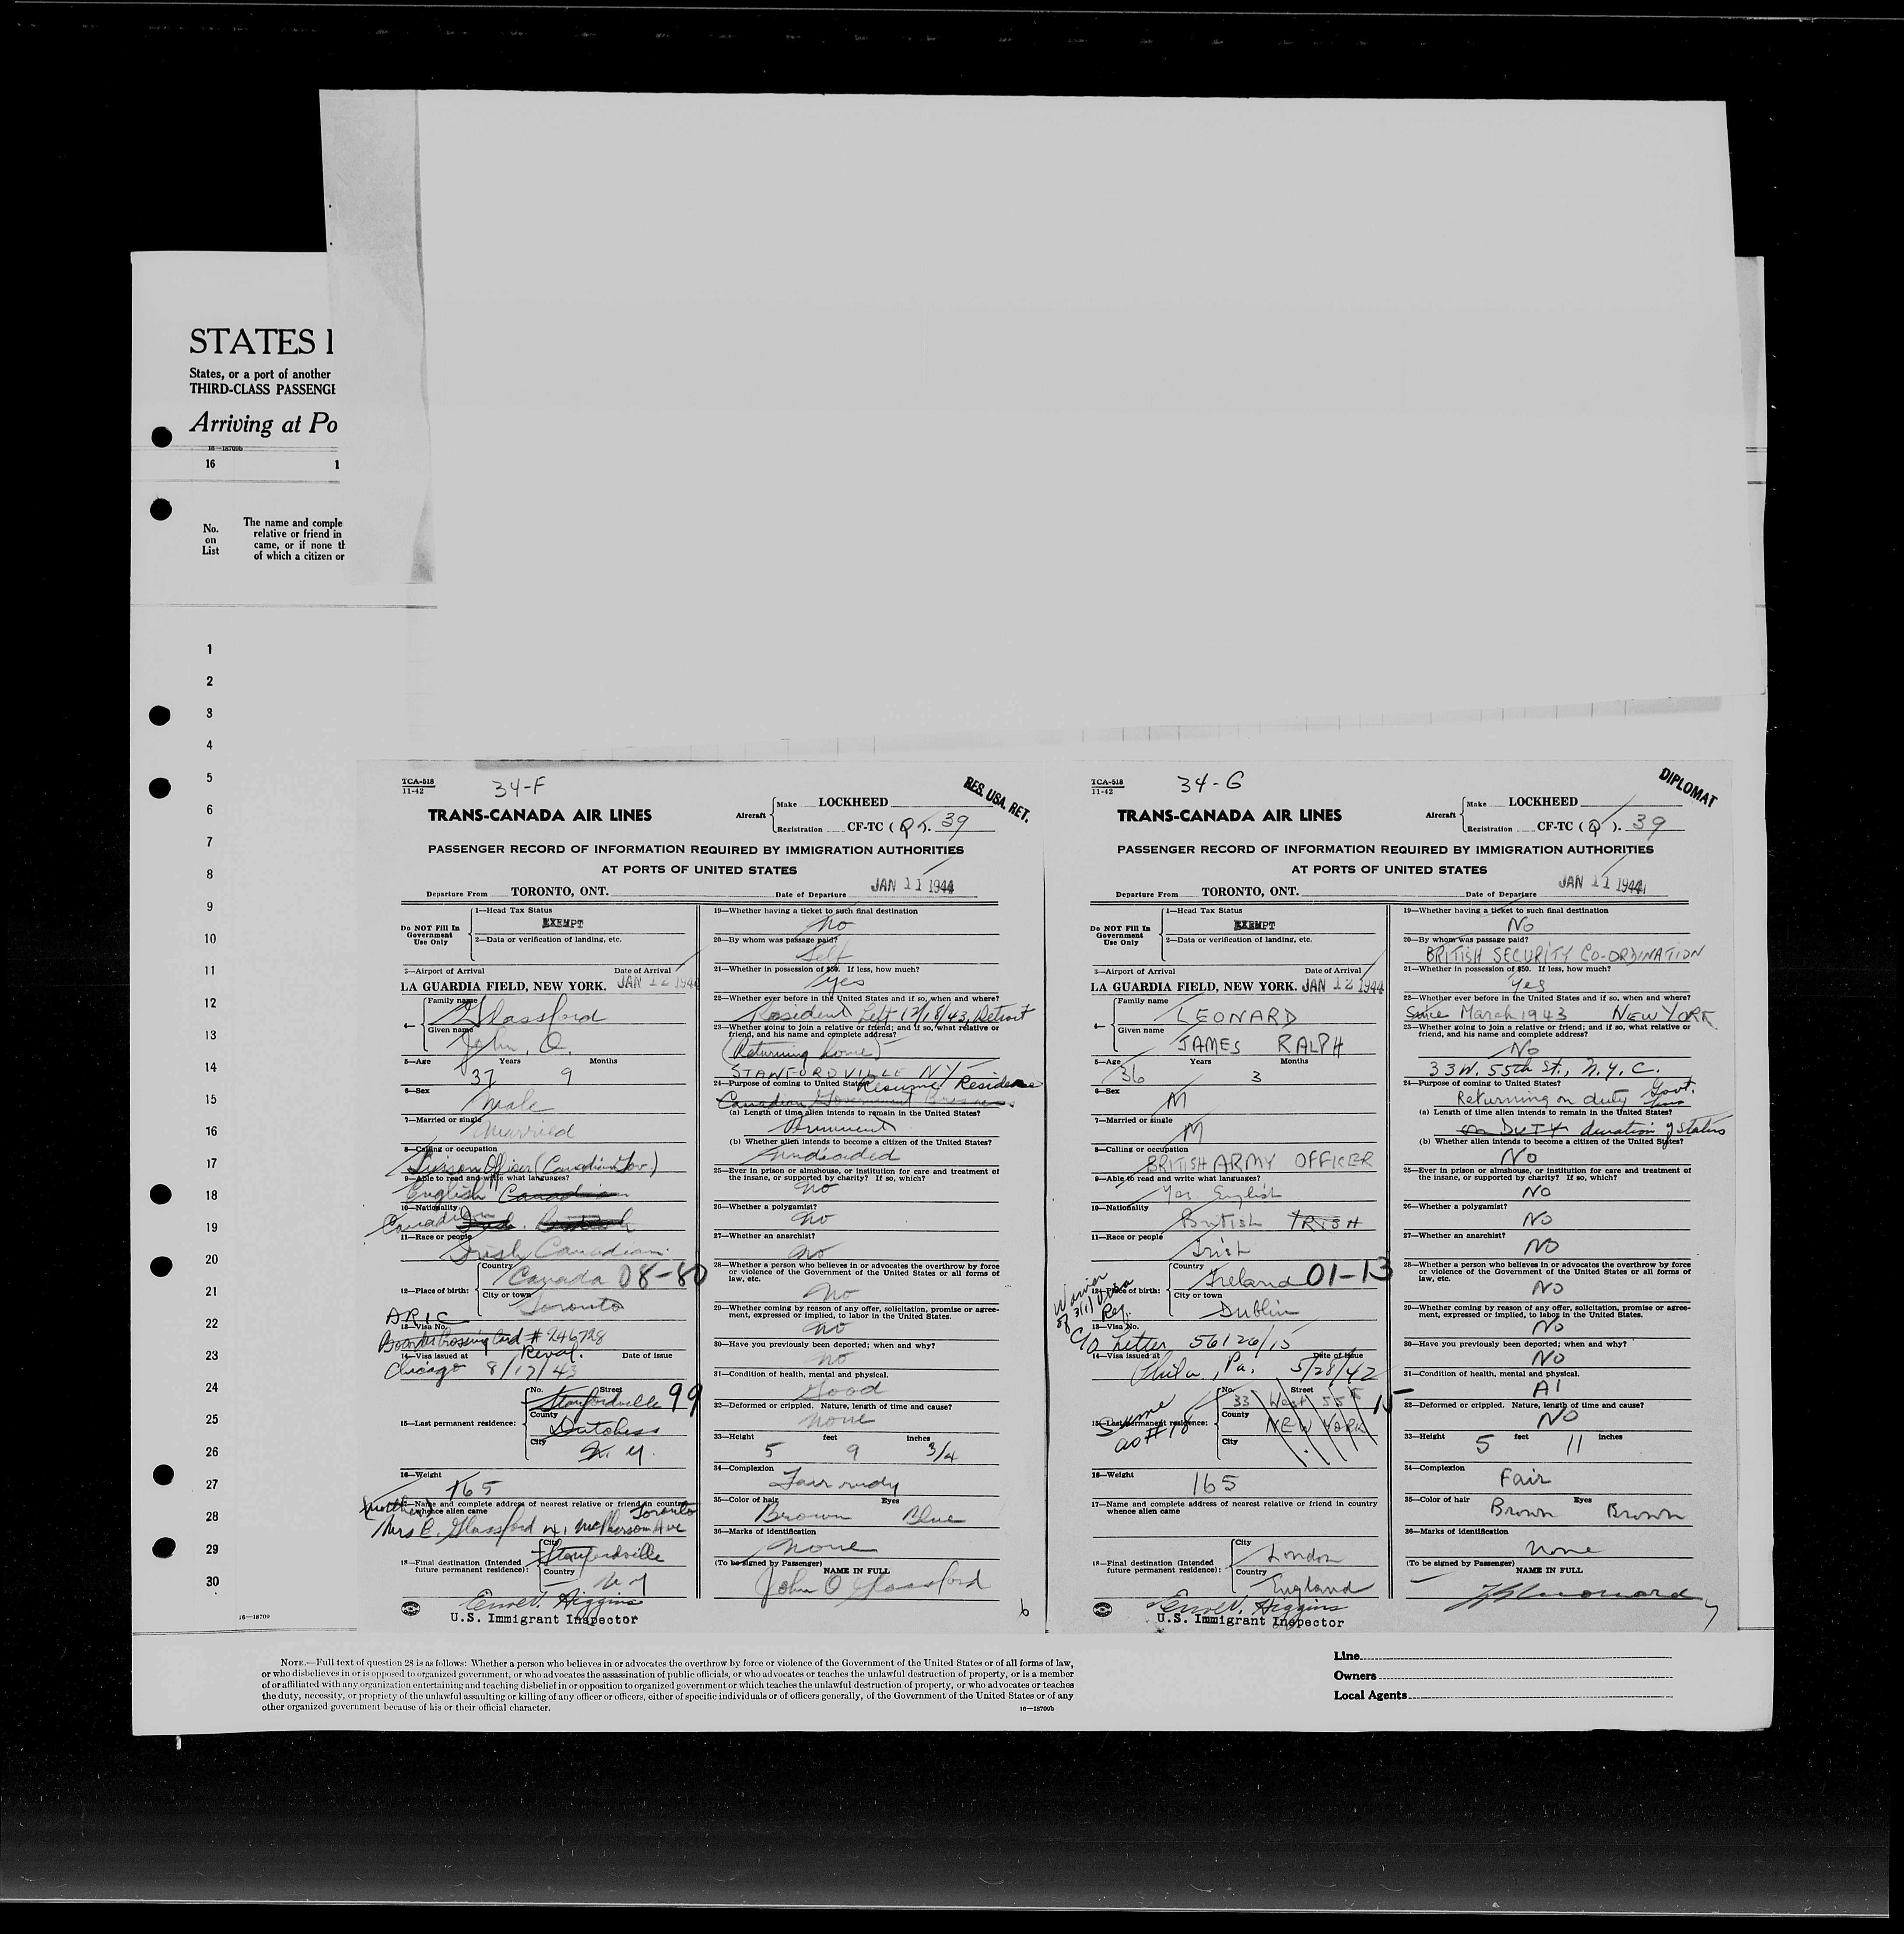 STATES I
States, or a port of another
THIRD-CLASS PASSENGE
Arriving at Po
16—18709b
16 1
No. on List
The name and comple
relative or friend in
came, or if none th
of which a citizen or
1
2
3
4
5
6
7
8
9
10
11
12
13
14
15
16
17
18
19
20
21
22
23
24
25
26
27
28
29
30
16—18709
TCA-518
11-42
34-F
RES. USA. RET.
TRANS-CANADA AIR LINES
Aircraft
Make LOCKHEED
Registration CF-TC (Q). 39
PASSENGER RECORD OF INFORMATION REQUIRED BY IMMIGRATION AUTHORITIES
AT PORTS OF UNITED STATES
Departure From TORONTO, ONT. Date of Departure JAN 11 1944
Do NOT Fill In
Government
Use Only
1—Head Tax Status
EXEMPT
2—Data or verification of landing, etc.
3—Airport of Arrival Date of Arrival
LA GUARDIA FIELD, NEW YORK. JAN 12 1944
4—
Family name
Glassford
Given name
John O.
5—Age Years Months
37 9
6—Sex
Male
7—Married or single
Married
8—Calling or occupation
Liason Officer (Canadian Gov.)
9—Able to read and write what languages?
English Canadian
10—Nationality
Canadian
11—Race or people
Irish Canadian.
12—Place of birth:
Country
Canada 08-80
City or town
Toronto
ARIC
13—Visa No.
Border Crossing Card # 246728
Reval.
14—Visa issued at Date of issue
Chicago 8/17/43
15—Last permanent residence:
No. Street
Stanfordville 99
County
Dutchess
City
N. Y.
16—Weight
165
17—Name and complete address of nearest relative or friend in country
whence alien came
(mother) Toronto
Mrs E. Glassford 41 McPherson Ave
18—Final destination (Intended
future permanent residence):
City
Stanfordville
Country
N Y
U.S. Immigrant Inspector
19—Whether having a ticket to such final destination
No
20—By whom was passage paid?
Self
21—Whether in possession of $50. If less, how much?
Yes
22—Whether ever before in the United States and if so, when and where?
Resident Left 12/18/43, Detroit
23—Whether going to join a relative or friend; and if so, what relative or
friend, and his name and complete address?
(Returning home)
STANFORDVILLE NY
24—Purpose of coming to United States?
Resume Residence
Canadian Government Business
(a) Length of time alien intends to remain in the United States?
Permanent
(b) Whether alien intends to become a citizen of the United States?
Undecided
25—Ever in prison or almshouse, or institution for care and treatment of
the insane, or supported by charity? If so, which?
No
26—Whether a polygamist?
No
27—Whether an anarchist?
No
28—Whether a person who believes in or advocates the overthrow by force
or violence of the Government of the United States or all forms of
law, etc.
No
29—Whether coming by reason of any offer, solicitation, promise or agree-
ment, expressed or implied, to labor in the United States.
No
30—Have you previously been deported; when and why?
No
31—Condition of health, mental and physical.
Good
32—Deformed or crippled. Nature, length of time and cause?
None
33—Height feet inches
5 9 3/4
34—Complexion
Fair rudy
35—Color of hair Eyes
Brown Blue
36—Marks of identification
None
(To be signed by Passenger) NAME IN FULL
John O Glassford
6
TCA-518
11-42
34-G
DIPLOMAT
TRANS-CANADA AIR LINES
Aircraft
Make LOCKHEED
Registration CF-TC (Q). 39
PASSENGER RECORD OF INFORMATION REQUIRED BY IMMIGRATION AUTHORITIES
AT PORTS OF UNITED STATES
Departure From TORONTO, ONT. Date of Departure JAN 11 1944
Do NOT Fill In
Government
Use Only
1—Head Tax Status
EXEMPT
2—Data or verification of landing, etc.
3—Airport of Arrival Date of Arrival
LA GUARDIA FIELD, NEW YORK. JAN 12 1944
4—
Family name
LEONARD
Given name
JAMES RALPH
5—Age Years Months
36 3
6—Sex
M
7—Married or single
M
8—Calling or occupation
BRITISH ARMY OFFICER
9—Able to read and write what languages?
Yes English
10—Nationality
British IRISH
11—Race or people
Irish
12—Place of birth:
Country
Ireland 01-13
City or town
Dublin
Waiver of 3(1) Visa Reg.
13—Visa No.
C/O Letter 56126/15
14—Visa issued at Date of issue
Phila., Pa. 5/28/42
15—Last permanent residence:
Same as #18
No. Street
33 West 55th 15
County
NEW YORK
City
16—Weight
165
17—Name and complete address of nearest relative or friend in country
whence alien came
18—Final destination (Intended
future permanent residence):
City
London
Country
England
U.S. Immigrant Inspector
19—Whether having a ticket to such final destination
No
20—By whom was passage paid?
BRITISH SECURITY CO-ORDINATION
21—Whether in possession of $50. If less, how much?
Yes
22—Whether ever before in the United States and if so, when and where?
Since March 1943 NEW YORK
23—Whether going to join a relative or friend; and if so, what relative or
friend, and his name and complete address?
No
33 W. 55th St., N.Y.C.
24—Purpose of coming to United States?
Returning on duty Govt.
(a) Length of time alien intends to remain in the United States?
on DUTY duration of status
(b) Whether alien intends to become a citizen of the United States?
No
25—Ever in prison or almshouse, or institution for care and treatment of
the insane, or supported by charity? If so, which?
No
26—Whether a polygamist?
No
27—Whether an anarchist?
NO
28—Whether a person who believes in or advocates the overthrow by force
or violence of the Government of the United States or all forms of
law, etc.
NO
29—Whether coming by reason of any offer, solicitation, promise or agree-
ment, expressed or implied, to labor in the United States.
No
30—Have you previously been deported; when and why?
No
31—Condition of health, mental and physical.
A1
32—Deformed or crippled. Nature, length of time and cause?
NO
33—Height feet inches
5 11
34—Complexion
Fair
35—Color of hair Eyes
Brown Brown
36—Marks of identification
None
(To be signed by Passenger) NAME IN FULL
7
NOTE.—Full text of question 28 is as follows: Whether a person who believes in or advocates the overthrow by force or violence of the Government of the United States or of all forms of law,
or who disbelieves in or is opposed to organized government, or who advocates the assassination of public officials, or who advocates or teaches the unlawful destruction of property, or is a member
of or affiliated with any organization entertaining and teaching disbelief in or opposition to organized government or which teaches the unlawful destruction of property, or who advocates or teaches
the duty, necessity, or propriety of the unlawful assaulting or killing of any officer or officers, either of specific individuals or of officers generally, of the Government of the United States or of any
other organized government because of his or their official character.
16—18709b
Line
Owners
Local Agents